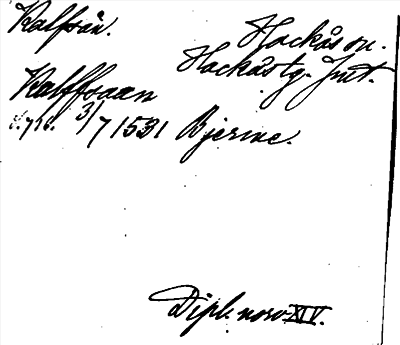 Kalfsån. Hackås sn.
Hackåstg. Jmt.
Kalffoaan
3/7 1531 Bjerme.
Dipl. norv. XIV.